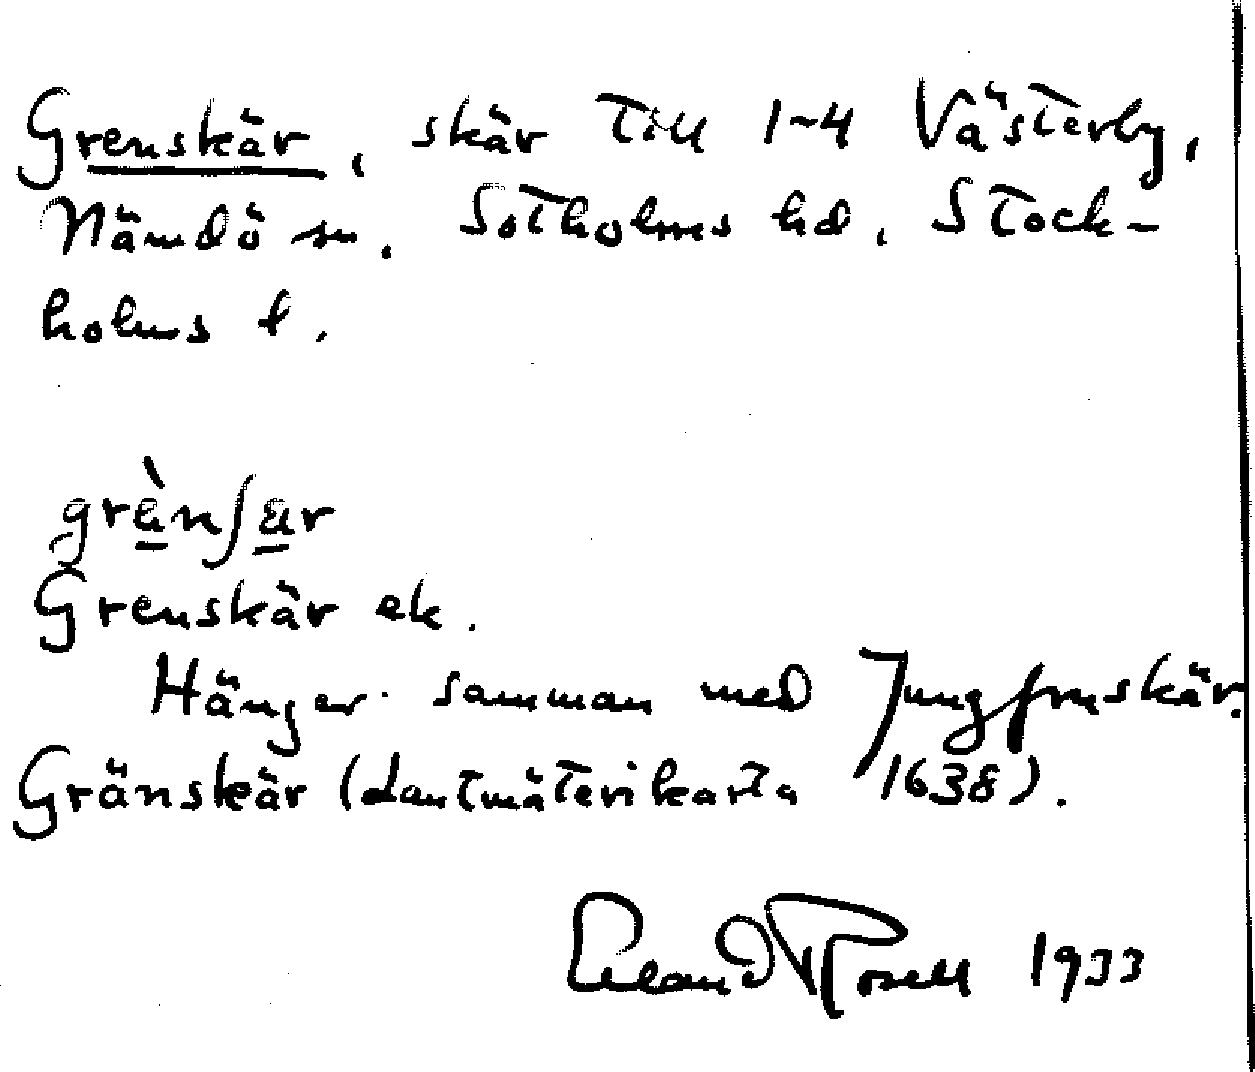 Grenskär, skär till 1-4 Västerby,
Nämdö sn. Sotholms hd. Stock-
holms l.
grä̀nʃär
Grenskär ek.
Hänger samman med Jungfruskär.
Gränskär (Lantmäterikarta 1638).
Erland Rosell 1933